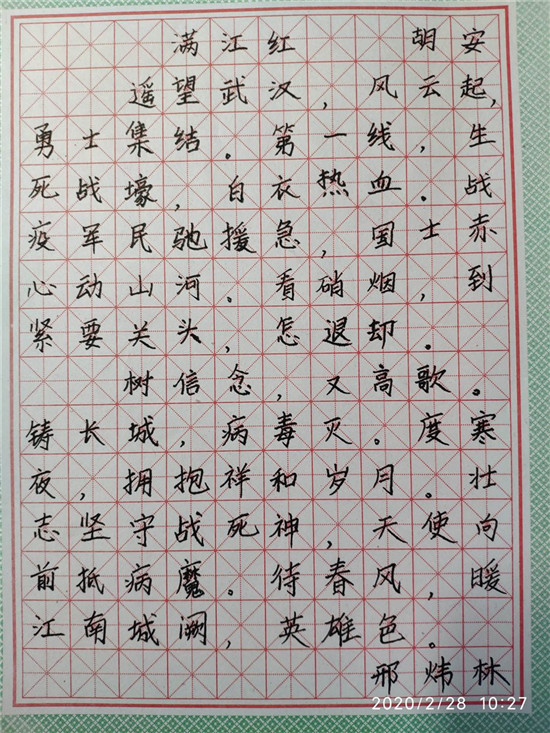 满江红 胡安
遥望武汉，风云起，
勇士集结。第一线，生
死战壕，白衣热血。战
疫军民驰援急，国士赤
心动山河。看硝烟，到
紧要关头，怎退却。
树信念，又高歌。
铸长城，病毒灭。度寒
夜，拥抱祥和岁月。壮
志坚守战死神，天使向
前抵病魔。待春风，暖
江南城阙，英雄色。
邢炜林
2020/2/28 10:27